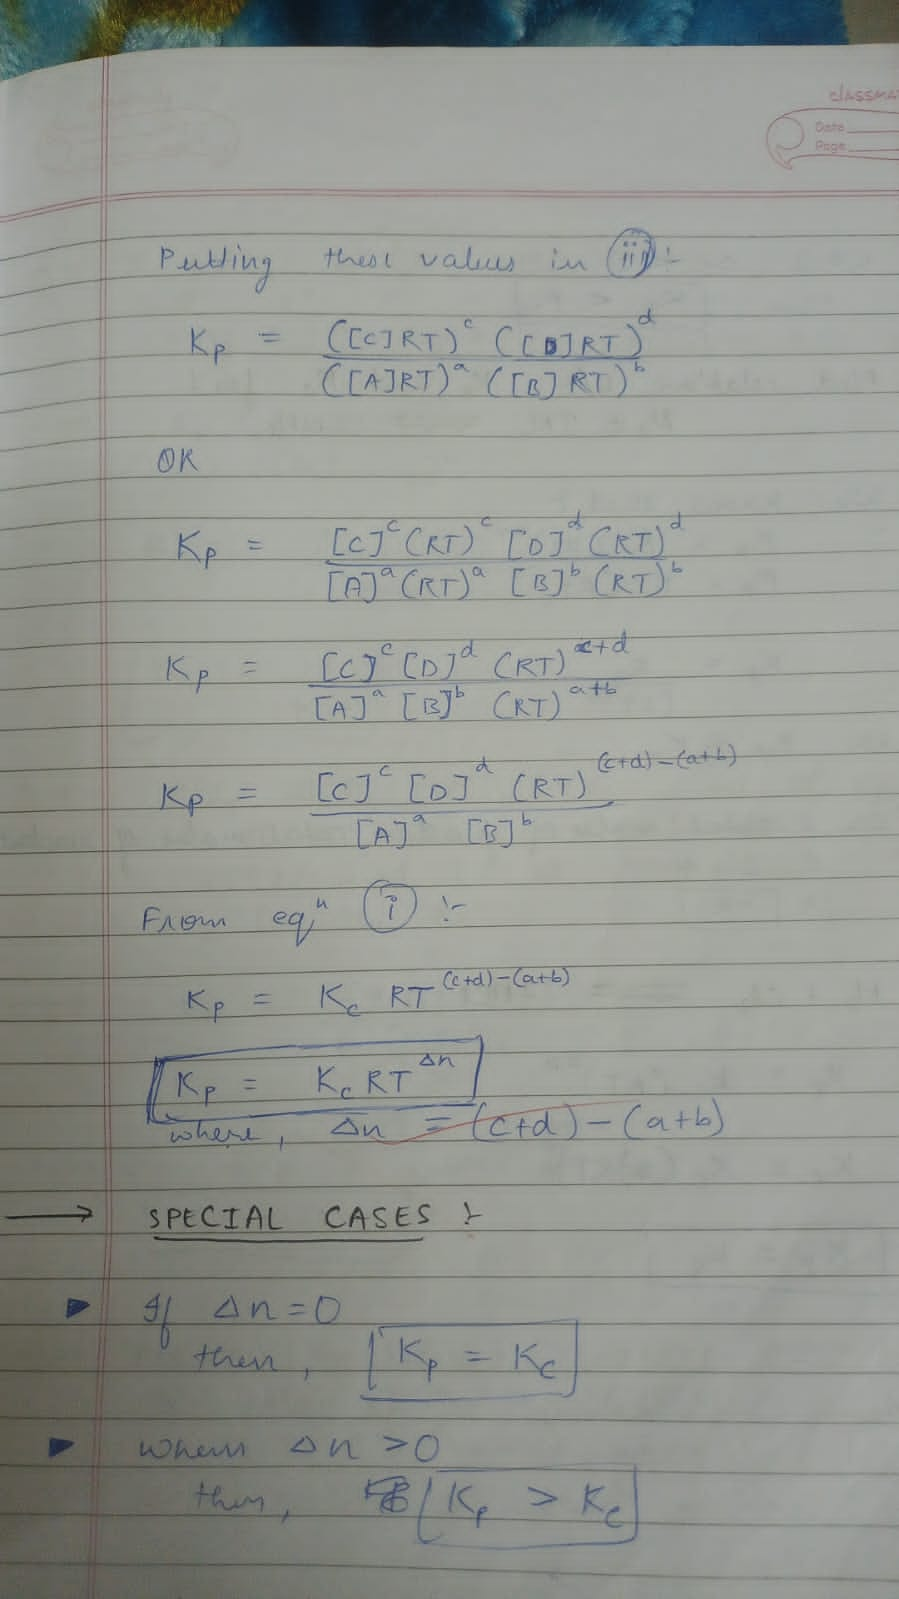 classma
Date
Page
Putting these values in (iii) :-
Kp = ([C]RT)^c ([D]RT)^d
([A]RT)^a ([B]RT)^b
OR
Kp = [C]^c (RT)^c [D]^d (RT)^d
[A]^a (RT)^a [B]^b (RT)^b
Kp = [C]^c [D]^d (RT)^c+d
[A]^a [B]^b (RT)^a+b
Kp = [C]^c [D]^d (RT)^(c+d)-(a+b)
[A]^a [B]^b
From eqⁿ (i) :-
Kp = Kc RT^(c+d)-(a+b)
Kp = Kc RT^Δn
where, Δn = (c+d) - (a+b)
→ SPECIAL CASES :-
► If Δn = 0
then, Kp = Kc
► when Δn > 0
then, Kp > Kc